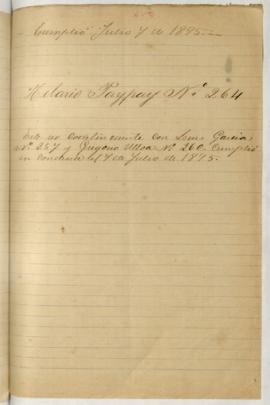 Cumplió Julio 7 de 1895.
Hilario Paypay Nº 264
Este no con Luis Garcia
Nº 257 y Gregorio Ulloa Nº 260. Cumplió
su condena el 7 de Julio de 1895.